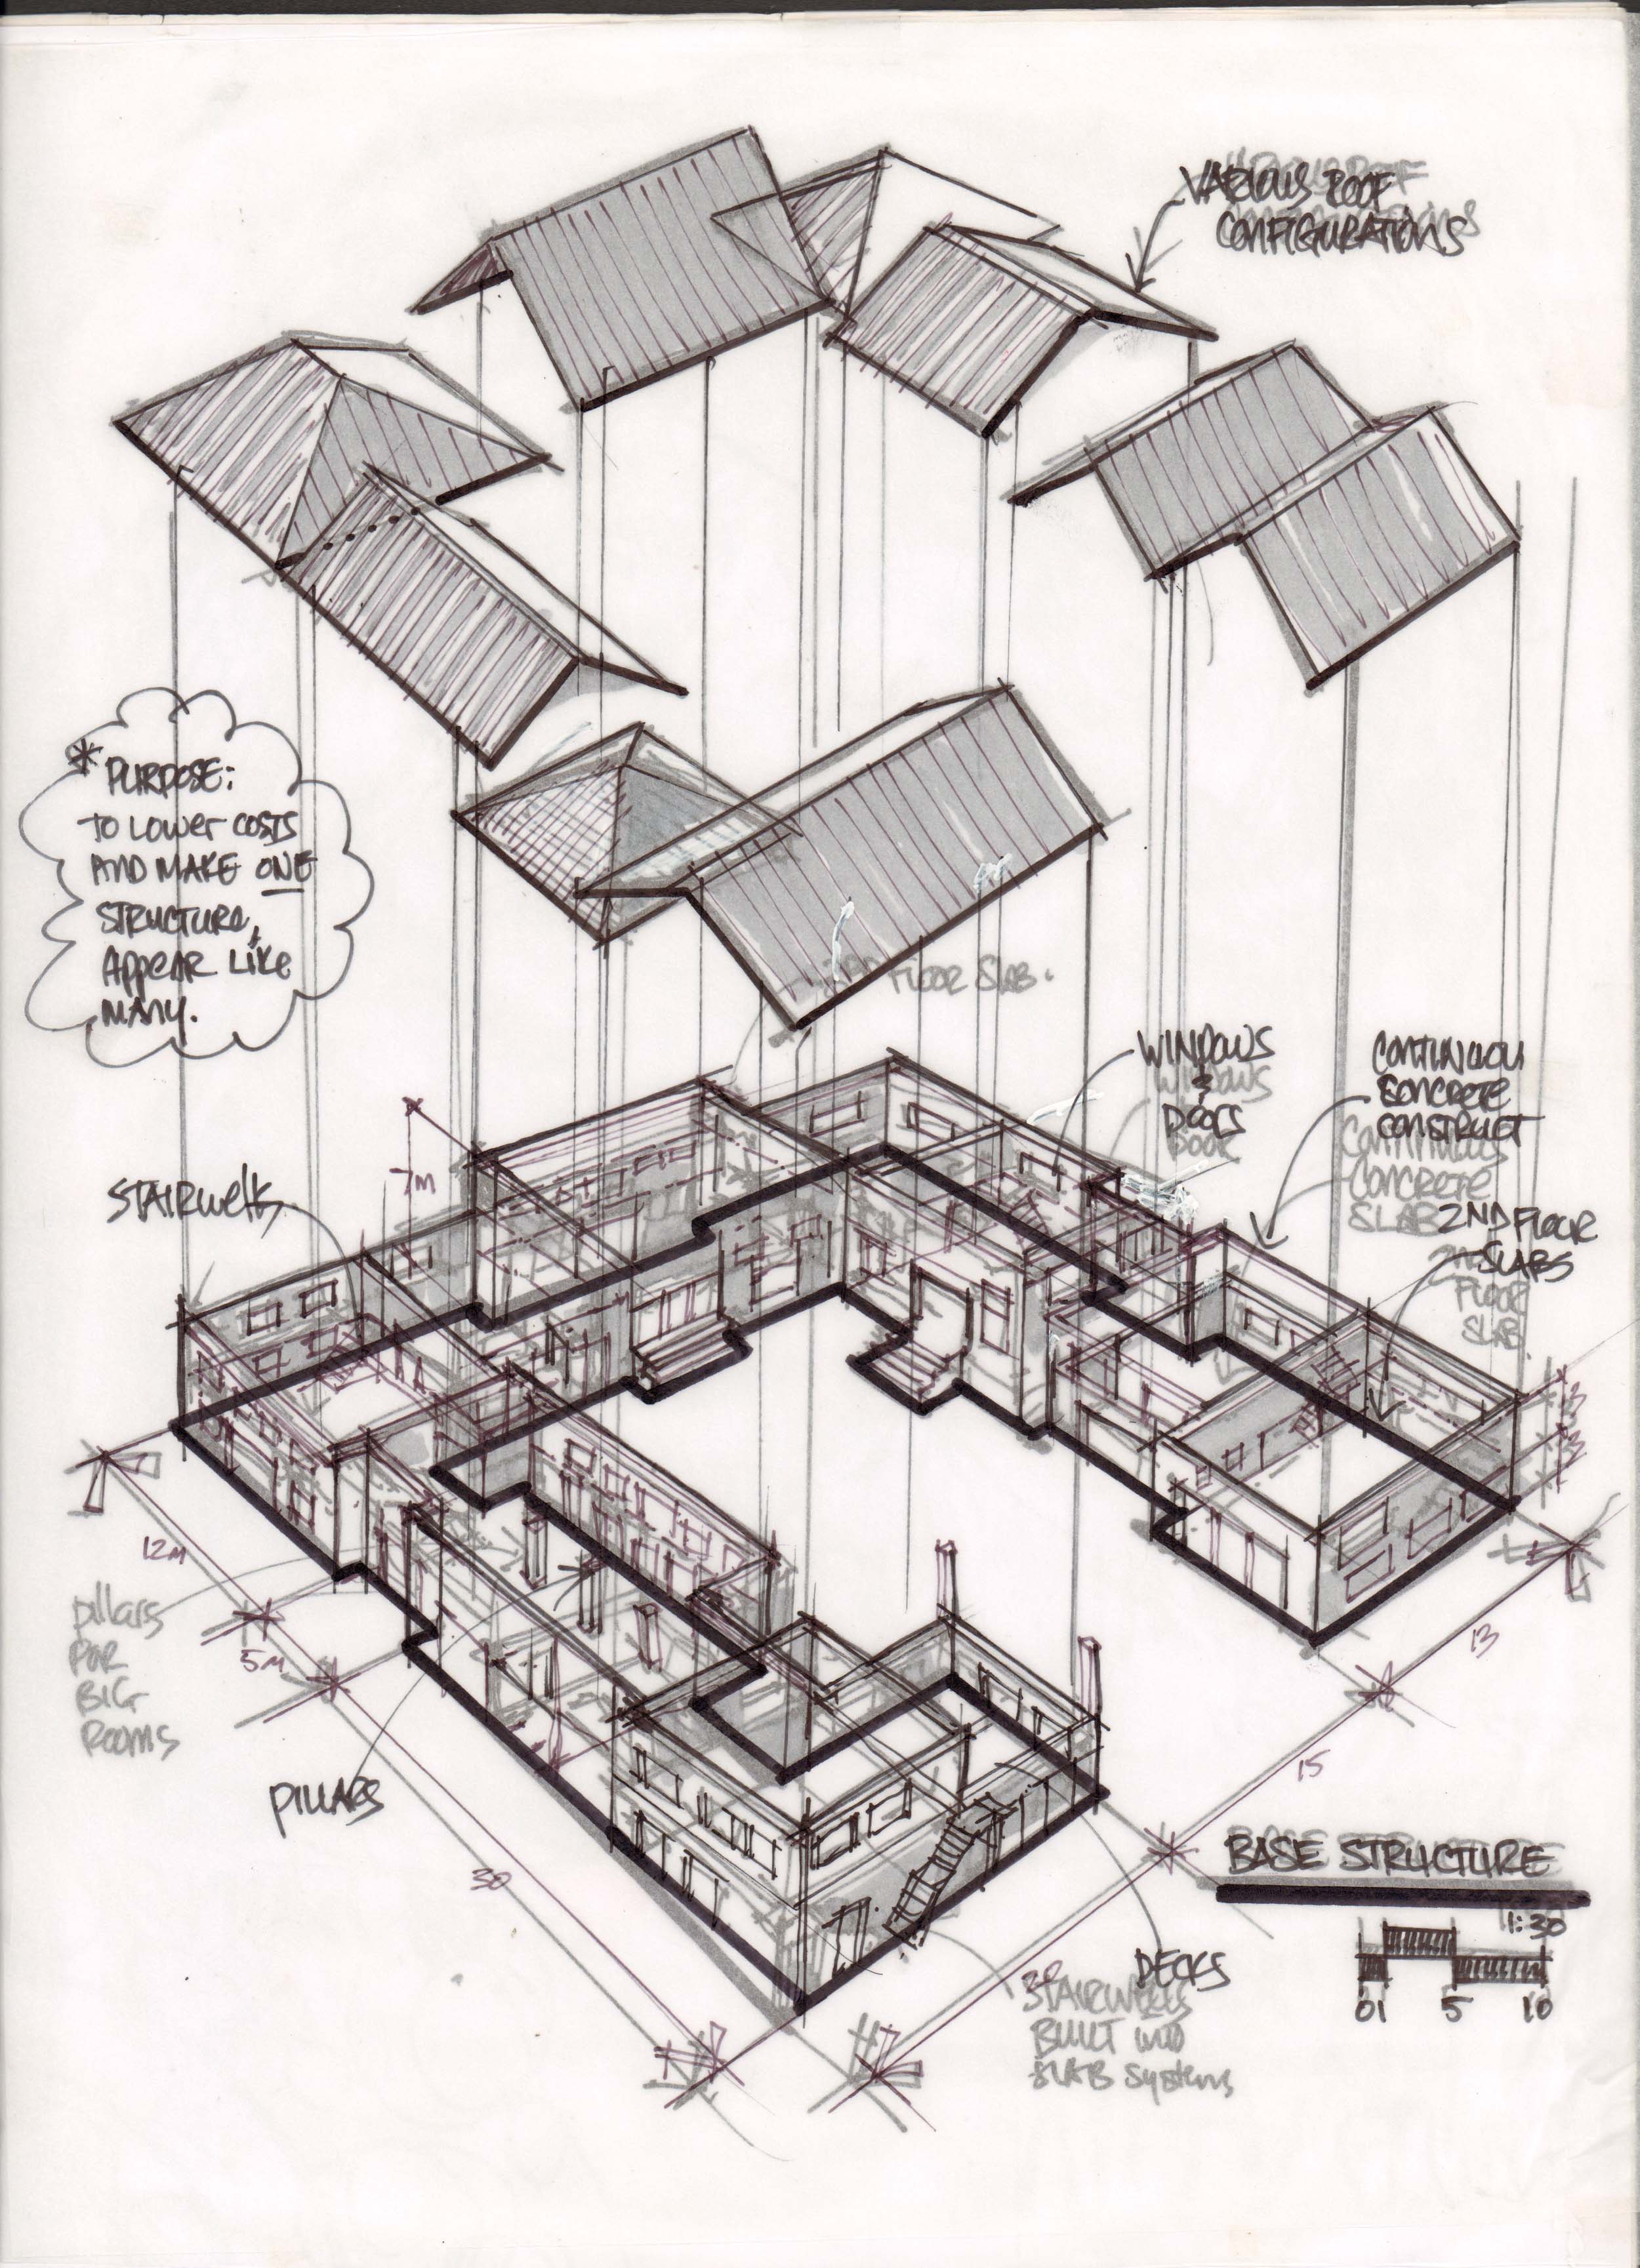 VARIOUS ROOF
CONFIGURATIONS
* PURPOSE:
TO LOWER COSTS
AND MAKE ONE
STRUCTURE,
APPEAR LIKE
MANY.
FLOOR SLAB.
WINDOWS
&
DOORS
WINDOWS
DOOR
CONTINUOU
CONCRETE
CONSTRUCT
CONTINUOUS
CONCRETE
SLAB
2ND FLOOR
SLABS
FLOOR
SLAB.
7M
STAIRWELLS
3
3
12M
5M
30
13
15
PILLARS
FOR
BIG
ROOMS
PILLARS
BASE STRUCTURE
1:30
0 1 5 10
DECKS
STAIRWELLS
BUILT INTO
SLAB SYSTEMS